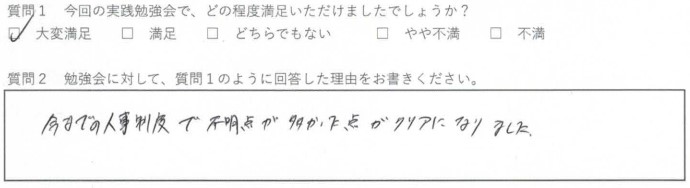 質問1 今回の実践勉強会で、どの程度満足いただけましたでしょうか？
☑ 大変満足 □ 満足 □ どちらでもない □ やや不満 □ 不満
質問2 勉強会に対して、質問1のように回答した理由をお書きください。
今までの人事制度で不明点が多かった点がクリアになりました。